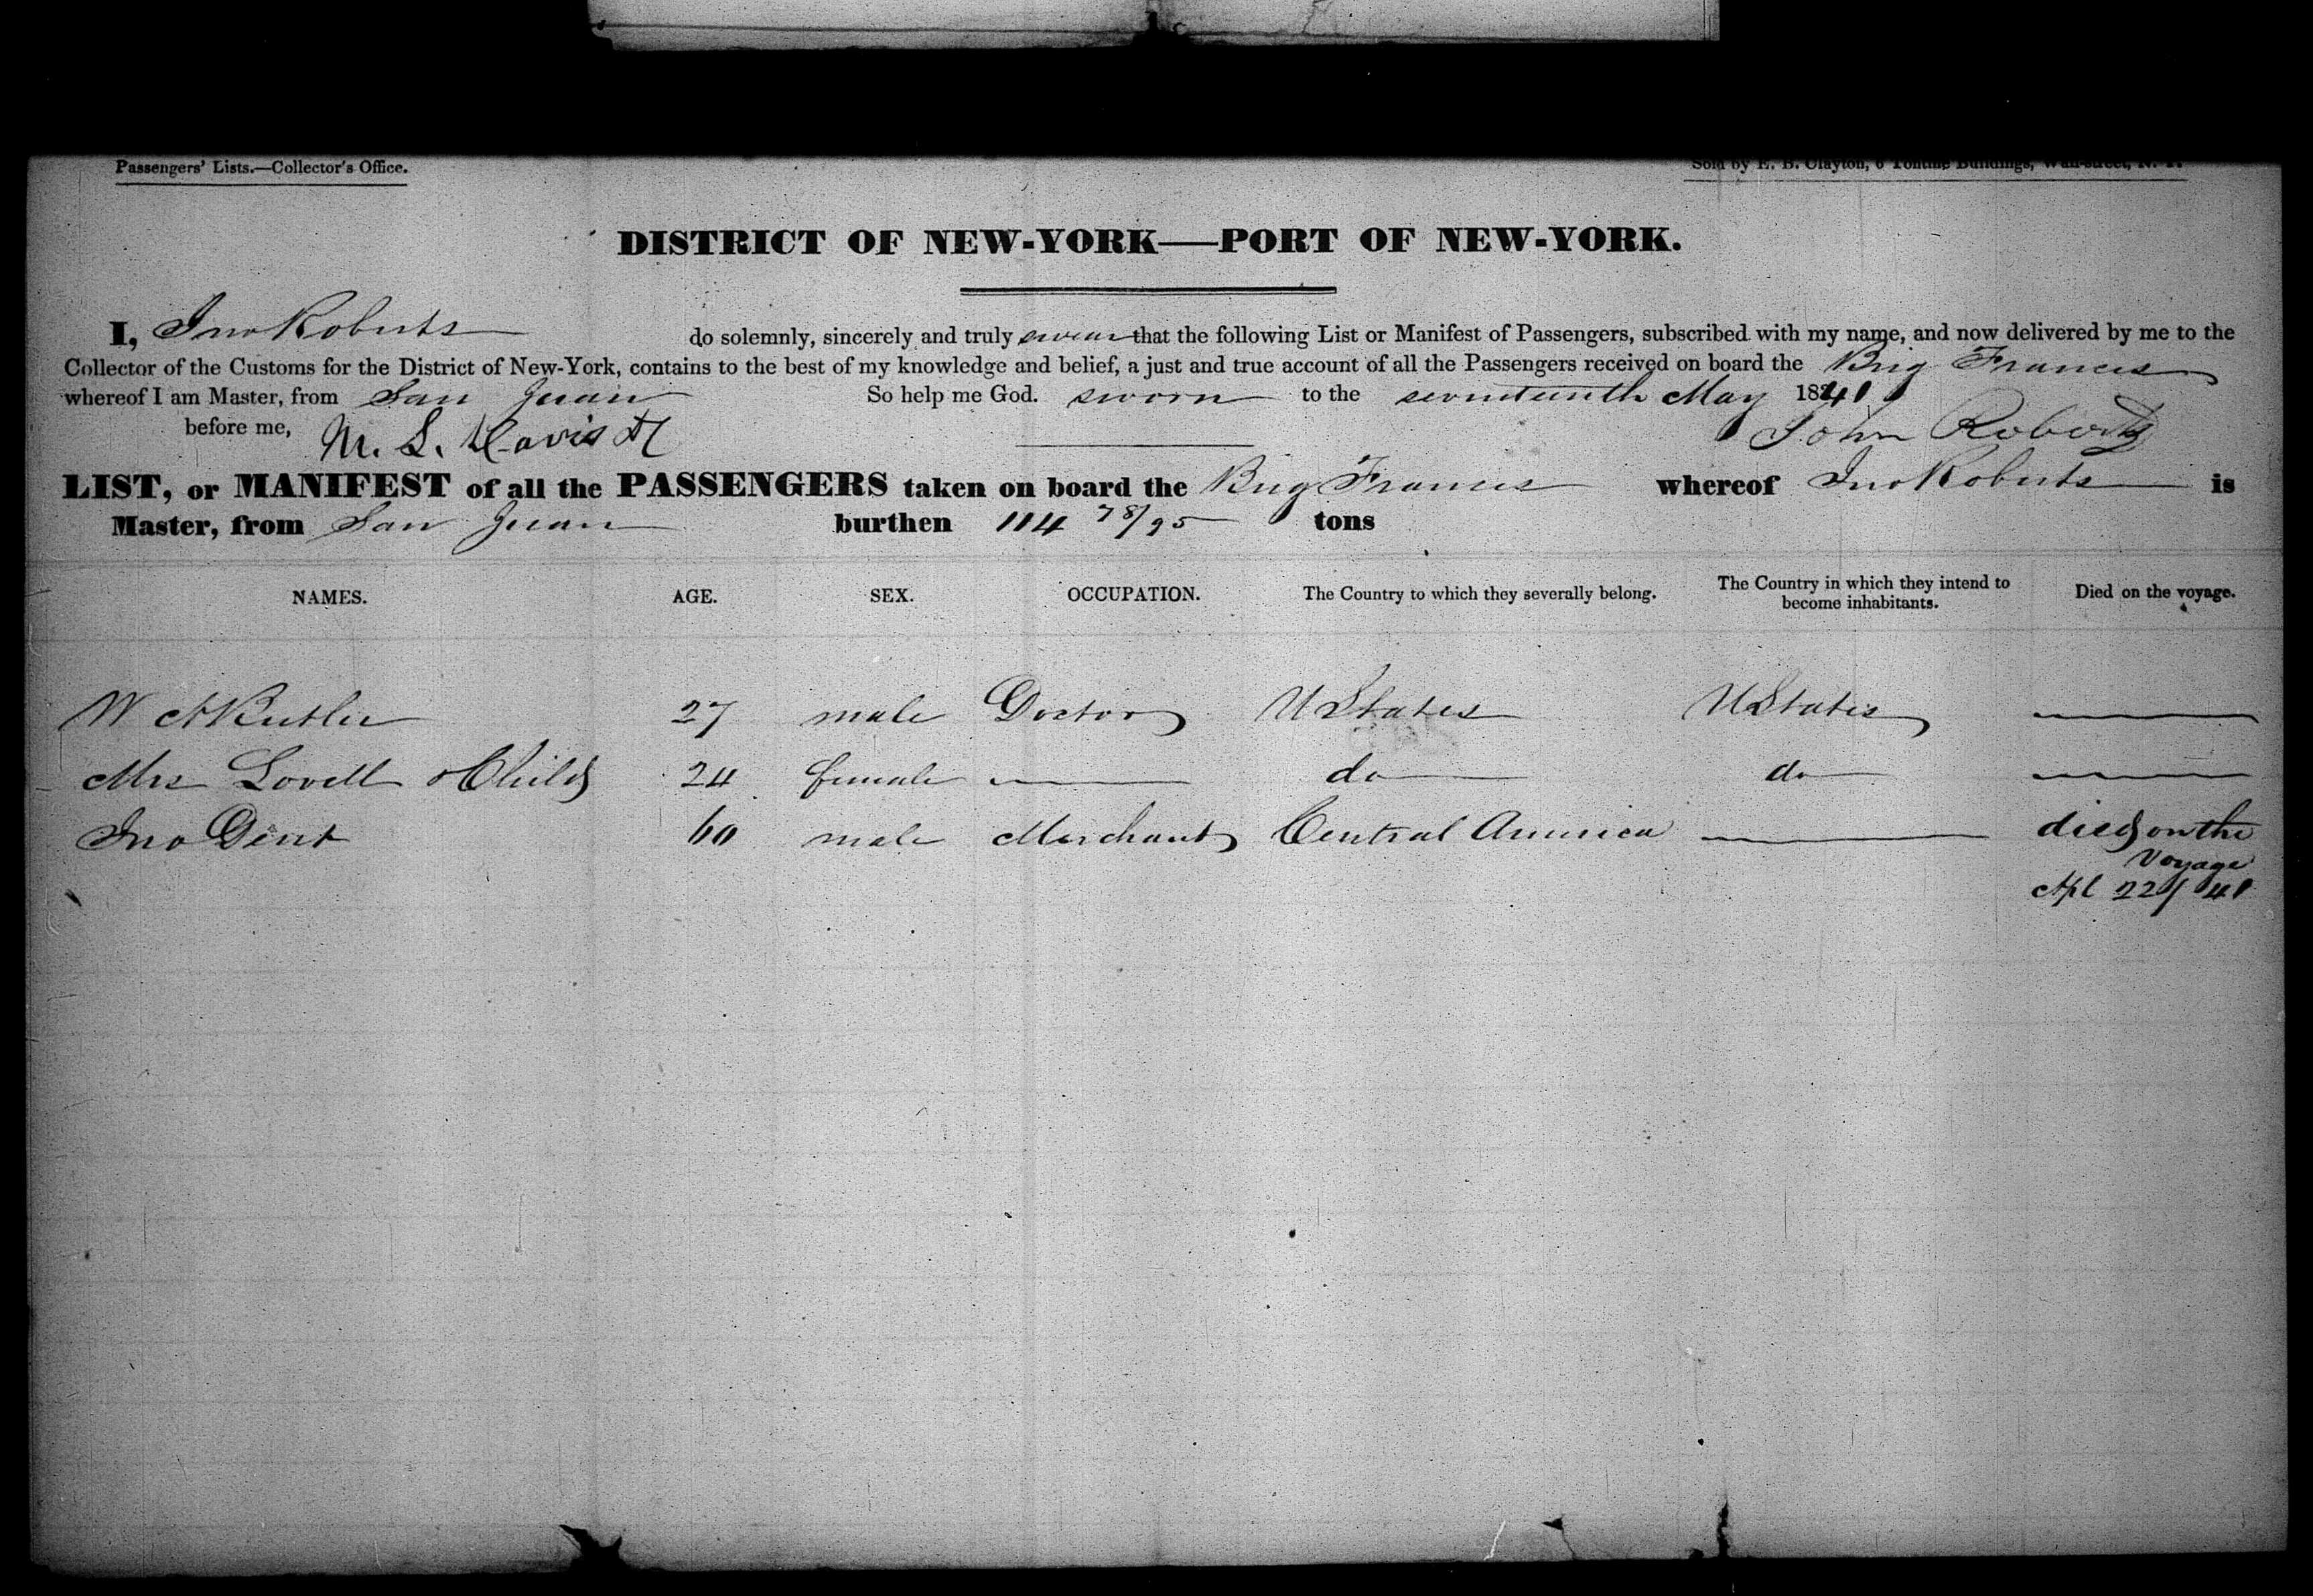 Passengers' Lists.—Collector's Office.
Sold by E. B. Clayton, 6 Tontine Buildings, Wall-street, N. Y.
DISTRICT OF NEW-YORK—PORT OF NEW-YORK.
I, Jno Roberts do solemnly, sincerely and truly swear that the following List or Manifest of Passengers, subscribed with my name, and now delivered by me to the
Collector of the Customs for the District of New-York, contains to the best of my knowledge and belief, a just and true account of all the Passengers received on board the Brig Frances
whereof I am Master, from San Juan So help me God. sworn to the seventeenth May 1841
before me, M. L. Davis John Roberts
LIST, or MANIFEST of all the PASSENGERS taken on board the Brig Frances whereof Jno Roberts is
Master, from San Juan burthen 114 78/95 tons
NAMES. AGE. SEX. OCCUPATION. The Country to which they severally belong. The Country in which they intend to become inhabitants. Died on the voyage.
W A Butler 27 male Doctor U States U States —
Mrs Lovell & Child 24 female — do do —
Jno Dent 60 male Merchant Central America — died on the
voyage
Apl 22/41